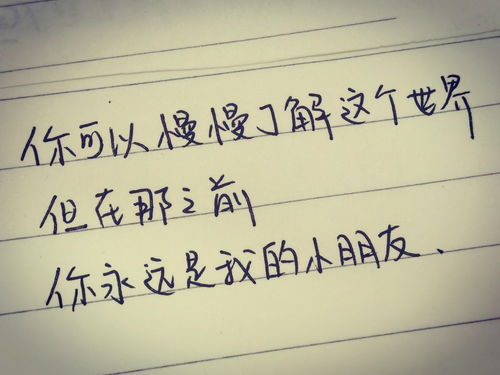 你可以慢慢了解这个世界
但在那之前
你永远是我的小朋友.